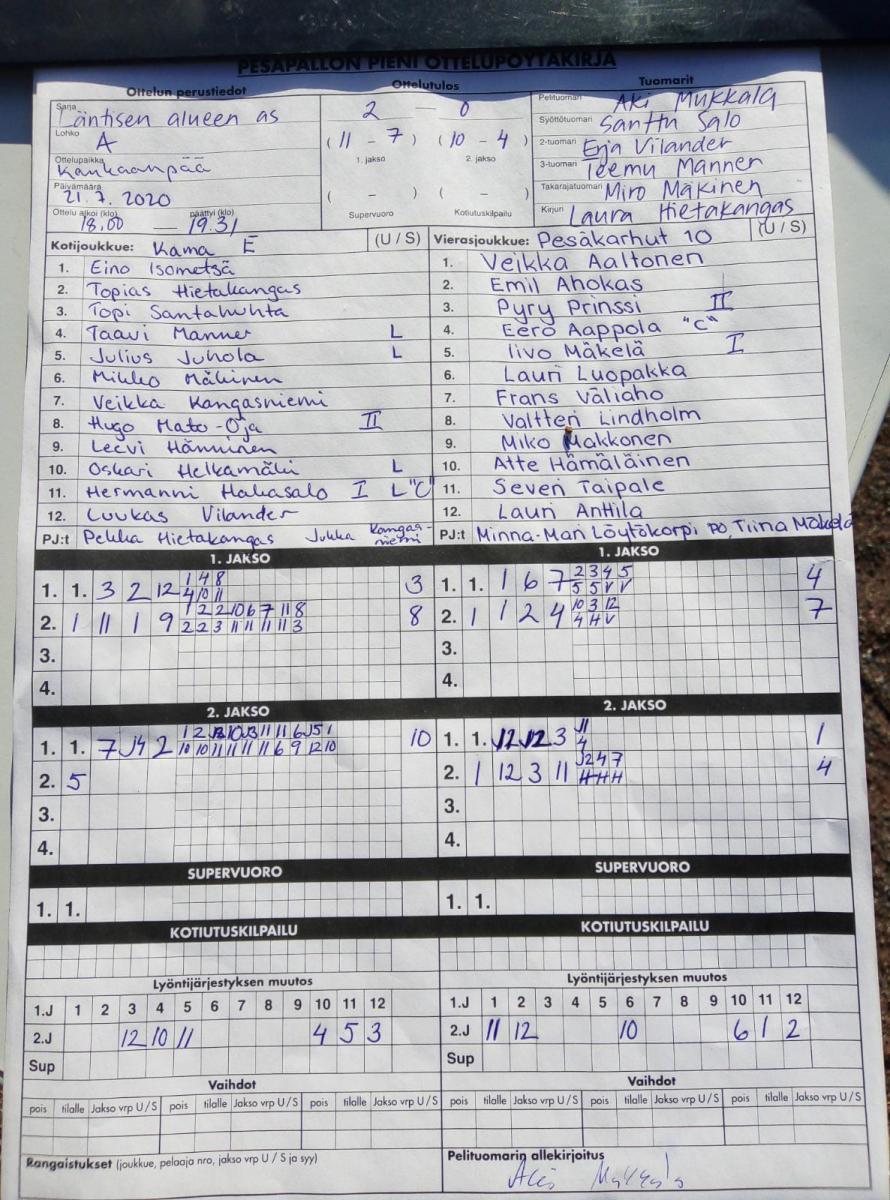 PESÄPALLON PIENI OTTELUPÖYTÄKIRJA
Ottelun perustiedot
Sarja Läntisen alueen as
Lohko A
Ottelupaikka Kankaanpää
Päivämäärä 21.7.2020
Ottelu alkoi (klo) 18.00 — päättyi (klo) 19.31
Ottelutulos
2 — 0
(11 - 7) (10 - 4)
1. jakso 2. jakso
( - ) ( - )
Supervuoro Kotiutuskilpailu
Tuomarit
Pelituomari Aki Mukkala
Syöttötuomari Santtu Salo
2-tuomari Erja Vilander
3-tuomari Teemu Manner
Takarajatuomari Miro Mäkinen
Kirjuri Laura Hietakangas
Kotijoukkue: Kama E (U / S)
1. Eino Isometsä
2. Topias Hietakangas
3. Topi Santahuhta
4. Taavi Manner L
5. Julius Juhola L
6. Mikko Mäkinen
7. Veikka Kangasniemi
8. Hugo Mato-Oja II
9. Leevi Hänninen
10. Oskari Helkamäki L
11. Hermanni Hakasalo I L "C"
12. Luukas Vilander
PJ:t Pekka Hietakangas Jukka Kangasniemi
Vierasjoukkue: Pesäkarhut 10 (U / S)
1. Veikka Aaltonen
2. Emil Ahokas
3. Pyry Prinssi II
4. Eero Aappola "C"
5. Iivo Mäkelä I
6. Lauri Luopakka
7. Frans Väliaho
8. Valtteri Lindholm
9. Miko Makkonen
10. Atte Hämäläinen
11. Severi Taipale
12. Lauri Anttila
PJ:t Minna-Mari Löytökorpi PO, Tiina Mäkelä
1. JAKSO
1. 1. 3 2 12 1 4 8 3
4 10 11
2. 1 11 1 9 1 2 2 10 6 7 11 8 8
2 2 3 11 11 11 11 3
3.
4.
1. JAKSO
1. 1. 1 6 7 2 3 4 5 4
5 5 V V
2. 1 1 2 4 10 3 12 7
4 H V
3.
4.
2. JAKSO
1. 1. 7 J4 2 10
10 10 11 11 11 11 6 9 12 10
2. 5
3.
4.
2. JAKSO
1. 1. J12 J12 3 11 1
4
2. 1 12 3 11 J2 4 7 4
H H H
3.
4.
SUPERVUORO
1. 1.
SUPERVUORO
1. 1.
KOTIUTUSKILPAILU
KOTIUTUSKILPAILU
Lyöntijärjestyksen muutos
1.J 1 2 3 4 5 6 7 8 9 10 11 12
2.J 12 10 11 4 5 3
Sup
Lyöntijärjestyksen muutos
1.J 1 2 3 4 5 6 7 8 9 10 11 12
2.J 11 12 10 6 1 2
Sup
Vaihdot
pois tilalle Jakso vrp U / S pois tilalle Jakso vrp U / S pois tilalle Jakso vrp U / S
Vaihdot
pois tilalle Jakso vrp U / S pois tilalle Jakso vrp U / S pois tilalle Jakso vrp U / S
Rangaistukset (joukkue, pelaaja nro, jakso vrp U / S ja syy)
Pelituomarin allekirjoitus
Aki Mukkala